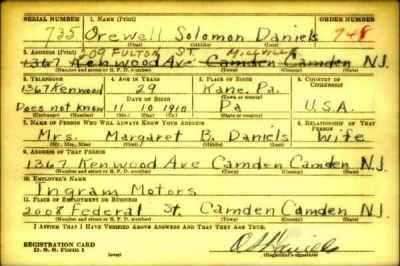 SERIAL NUMBER 1. NAME (Print) ORDER NUMBER
735 Orewell Solomon Daniels 748
(First) (Middle) (Last)
209 FULTON ST. MILLVILLE
2. ADDRESS (Print)
1367 Kenwood Ave Camden Camden N.J.
(Number and street or R. F. D. number) (Town) (County) (State)
3. TELEPHONE 4. AGE IN YEARS 5. PLACE OF BIRTH 6. COUNTRY OF CITIZENSHIP
1367 Kenwood 29 Kane, Pa.
DATE OF BIRTH
Does not know 11 10 1910 Pa U.S.A.
(Mo.) (Day) (Yr.)
7. NAME OF PERSON WHO WILL ALWAYS KNOW YOUR ADDRESS 8. RELATIONSHIP OF THAT PERSON
Mrs. Margaret B. Daniels Wife
(Mr., Mrs., Miss) (First) (Middle) (Last)
9. ADDRESS OF THAT PERSON
1367 Kenwood Ave Camden Camden N.J.
(Number and street or R. F. D. number) (Town) (County) (State)
10. EMPLOYER'S NAME
Ingram Motors
11. PLACE OF EMPLOYMENT OR BUSINESS
2008 Federal St. Camden Camden N.J.
(Number and street or R. F. D. number) (Town) (County) (State)
I AFFIRM THAT I HAVE VERIFIED ABOVE ANSWERS AND THAT THEY ARE TRUE.
REGISTRATION CARD
D. S. S. Form 1 (over) (Registrant's signature)